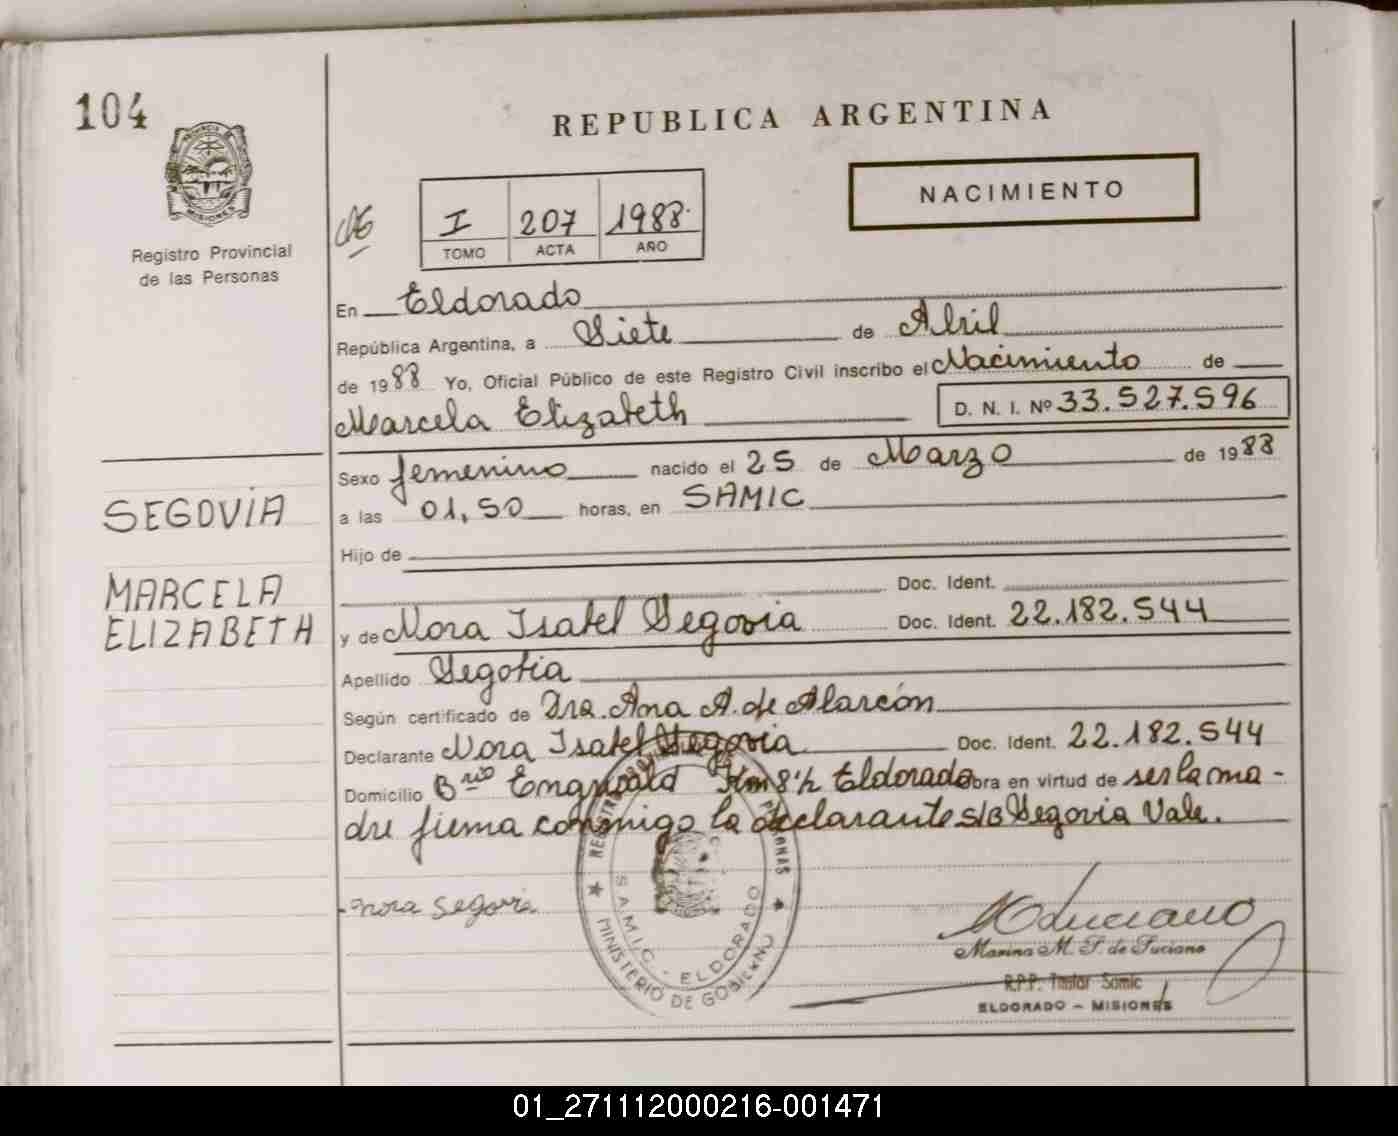 104
REPUBLICA ARGENTINA
PROVINCIA DE
MISIONES
Registro Provincial
de las Personas
NACIMIENTO
I 207 1988
TOMO ACTA AÑO
En Eldorado
República Argentina, a Siete de Abril
de 1988 Yo, Oficial Público de este Registro Civil inscribo el Nacimiento de
Marcela Elizabeth D. N. I. Nº 33.527.596
Sexo femenino nacido el 25 de Marzo de 1988
a las 01,50 horas, en SAMIC
Hijo de
Doc. Ident.
y de Nora Isabel Segovia Doc. Ident. 22.182.544
Apellido Segovia
Según certificado de Dra. Ana A. de Alarcón
Declarante Nora Isabel Segovia Doc. Ident. 22.182.544
Domicilio Brio Km 8½ Eldorado obra en virtud de ser la ma-
dre firma conmigo la declarante S/B Segovia Vale.
SEGOVIA
MARCELA
ELIZABETH
Nora Segovia
S.A.M.I.C. - ELDORADO
MINISTERIO DE GOBIERNO
Marina M. F. de Luciano
R.P.P. Titular Samic
ELDORADO - MISIONES
01_271112000216-001471